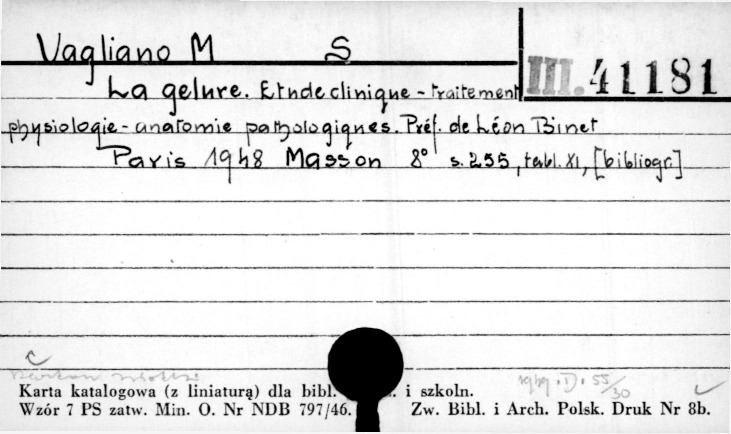 Vagliano M S
III. 41181
La gelure. Etude clinique - traitement
physiologie - anatomie pathologiques. Préf. de Léon Binet
Paris 1948 Masson 8° s. 255, tabl. XI, [bibliogr.]
1949. D. 55/30
Karta katalogowa (z liniaturą) dla bibl. i szkoln.
Wzór 7 PS zatw. Min. O. Nr NDB 797/46. Zw. Bibl. i Arch. Polsk. Druk Nr 8b.